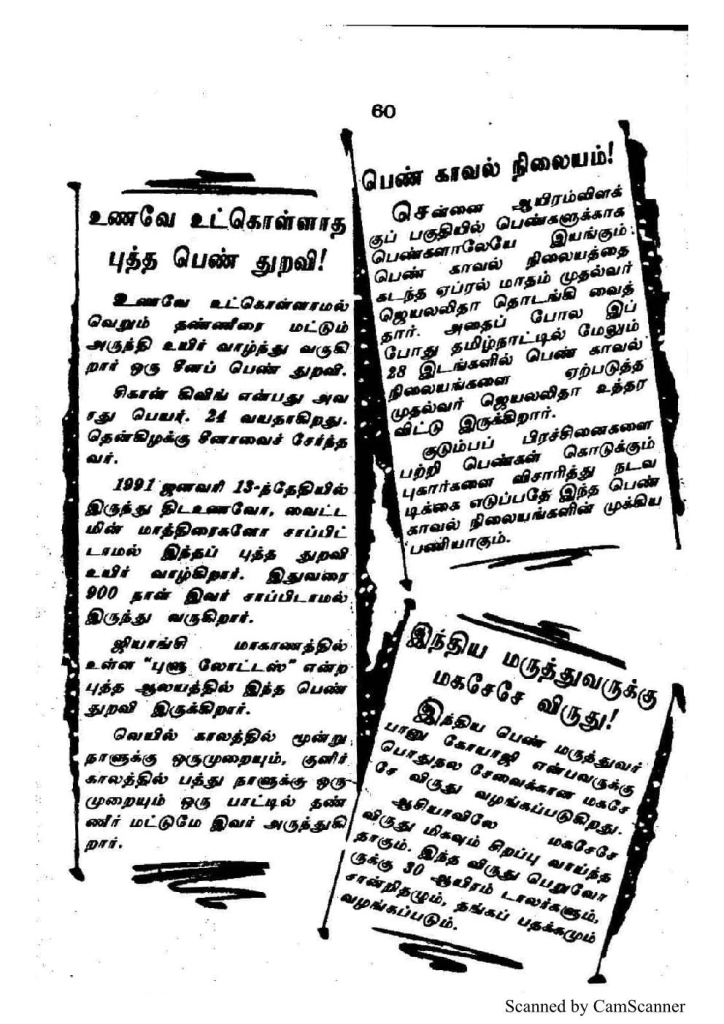 60
உணவே உட்கொள்ளாத
புத்த பெண் துறவி!
உணவே உட்கொள்ளாமல்
வெறும் தண்ணீரை மட்டும்
அருந்தி உயிர் வாழ்ந்து வருகி
றார் ஒரு சீனப் பெண் துறவி.
சிகான் கிவிங் என்பது அவ
ரது பெயர். 24 வயதாகிறது.
தென்கிழக்கு சீனாவைச் சேர்ந்த
வர்.
1991 ஜனவரி 13-ந்தேதியில்
இருந்து திடஉணவோ, வைட்ட
மின் மாத்திரைகளோ சாப்பிட்
டாமல் இந்தப் புத்த துறவி
உயிர் வாழ்கிறார். இதுவரை
900 நாள் இவர் சாப்பிடாமல்
இருந்து வருகிறார்.
ஜியாங்சி மாகாணத்தில்
உள்ள "புளூ லோட்டஸ்" என்ற
புத்த ஆலயத்தில் இந்த பெண்
துறவி இருக்கிறார்.
வெயில் காலத்தில் மூன்று
நாளுக்கு ஒருமுறையும், குளிர்
காலத்தில் பத்து நாளுக்கு ஒரு
முறையும் ஒரு பாட்டில் தண்
ணீர் மட்டுமே இவர் அருந்துகி
றார்.
பெண் காவல் நிலையம்!
சென்னை ஆயிரம்விளக்
குப் பகுதியில் பெண்களுக்காக
பெண்களாலேயே இயங்கும்
பெண் காவல் நிலையத்தை
கடந்த ஏப்ரல் மாதம் முதல்வர்
ஜெயலலிதா தொடங்கி வைத்
தார். அதைப் போல இப்
போது தமிழ்நாட்டில் மேலும்
28 இடங்களில் பெண் காவல்
நிலையங்களை ஏற்படுத்த
முதல்வர் ஜெயலலிதா உத்தர
விட்டு இருக்கிறார்.
குடும்பப் பிரச்சினைகளை
பற்றி பெண்கள் கொடுக்கும்
புகார்களை விசாரித்து நடவ
டிக்கை எடுப்பதே இந்த பெண்
காவல் நிலையங்களின் முக்கிய
பணியாகும்.
இந்திய மருத்துவருக்கு
மகசேசே விருது!
இந்திய பெண் மருத்துவர்
பானு கோயாஜி என்பவருக்கு
பொதுதல சேவைக்கான மகசே
சே விருது வழங்கப்படுகிறது.
ஆசியாவிலே மகசேசே
விருது மிகவும் சிறப்பு வாய்ந்த
தாகும். இந்த விருது பெறுவோ
ருக்கு 30 ஆயிரம் டாலர்களும்,
சான்றிதழும், தங்கப் பதக்கமும்
வழங்கப்படும்.
Scanned by CamScanner